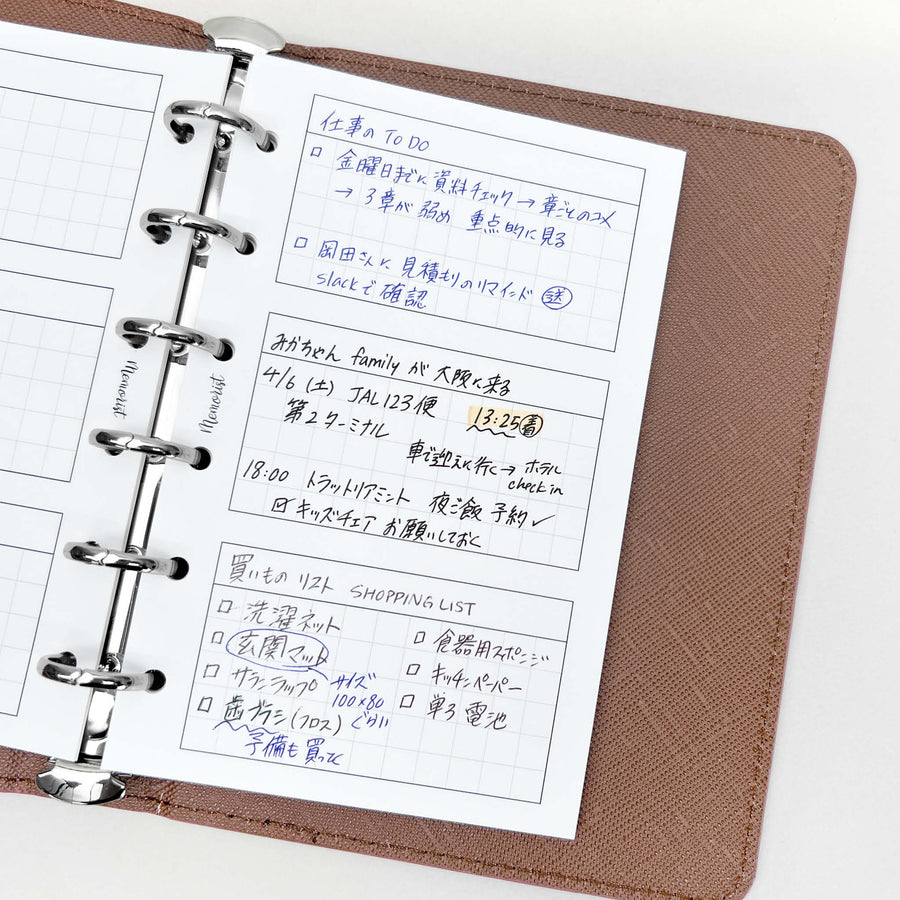 仕事の TO DO
□ 金曜日までに資料チェック → 章ごとのコメ
→ 3章が弱め 重点的に見る
□ 岡田さんに見積もりのリマインド 送
slackで確認
みかちゃん family が大阪に来る
4/6 (土) JAL123便 13:25着
第2ターミナル
車で迎えに行く→ ホテル
check in
18:00 トラットリアミント 夜ご飯 予約✓
☑ キッズチェア お願いしておく
買いもの リスト SHOPPING LIST
□ 洗濯ネット
□ 玄関マット
サイズ
100×80
ぐらい
□ サランラップ
□ 歯ブラシ(フロス)
予備も買って
□ 食器用スポンジ
□ キッチンペーパー
□ 単3電池
Memorist
Memorist